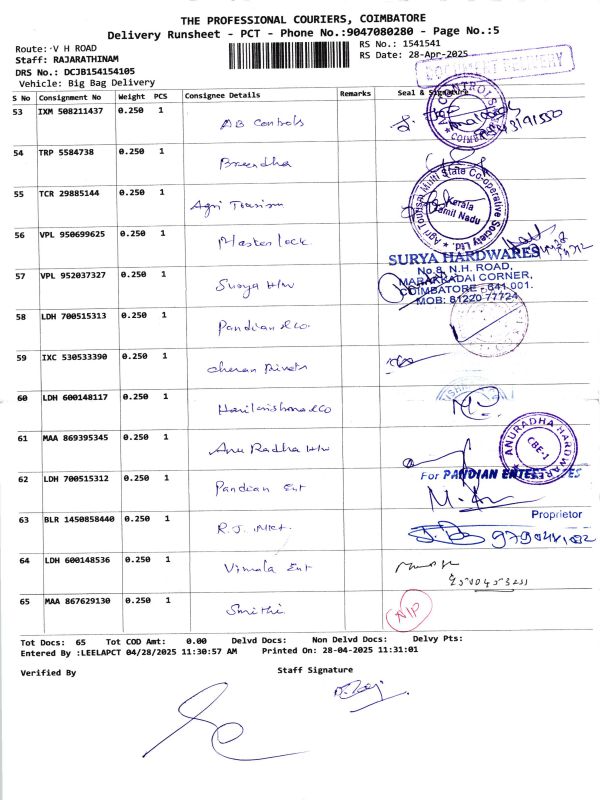 THE PROFESSIONAL COURIERS, COIMBATORE
Delivery Runsheet - PCT - Phone No.:9047080280 - Page No.:5
Route: V H ROAD
RS No.: 1541541
Staff: RAJARATHINAM
RS Date: 28-Apr-2025
DRS No.: DCJB154154105
DOCUMENT DELIVERY
Vehicle: Big Bag Delivery
S No Consignment No Weight PCS Consignee Details Remarks Seal & Signature
53 IXM 508211437 0.250 1 AB Controls
54 TRP 5584738 0.250 1 Breendha
55 TCR 29885144 0.250 1 Agri Tourism
Agri Tourism Multi State Co-operative Society Ltd.
Kerala
Tamil Nadu
56 VPL 950699625 0.250 1 Masterlock
SURYA HARDWARES
No.8, N.H. ROAD,
MARAKKADAI CORNER,
COIMBATORE - 641 001.
MOB: 81220 77724
57 VPL 952037327 0.250 1 Surya H/w
58 LDH 700515313 0.250 1 Pandian & Co.
59 IXC 530533390 0.250 1 cheran Rivets
60 LDH 600148117 0.250 1 Harikrishna & Co
61 MAA 869395345 0.250 1 Anu Radha H/w
ANURADHA HARDWARES
CBE-1
62 LDH 700515312 0.250 1 Pandian Ent
For PANDIAN ENTERPRISES
Proprietor
63 BLR 1450858440 0.250 1 R.J. Mkt.
64 LDH 600148536 0.250 1 Vimala Ent
65 MAA 867629130 0.250 1 Smithi
N/P
Tot Docs: 65 Tot COD Amt: 0.00 Delvd Docs: Non Delvd Docs: Delvy Pts:
Entered By :LEELAPCT 04/28/2025 11:30:57 AM Printed On: 28-04-2025 11:31:01
Verified By
Staff Signature